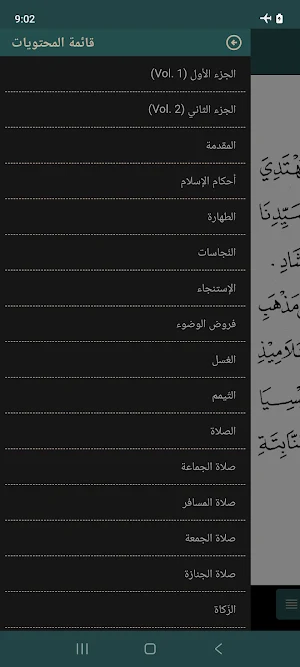 9:02
قائمة المحتويات
الجزء الأول (Vol. 1)
الجزء الثاني (Vol. 2)
المقدمة
أحكام الإسلام
الطهارة
النّجاسات
الإستنجاء
فروض الوضوء
الغسل
التّيمم
الصلاة
صلاة الجماعة
صلاة المسافر
صلاة الجمعة
صلاة الجنازة
الزّكاة